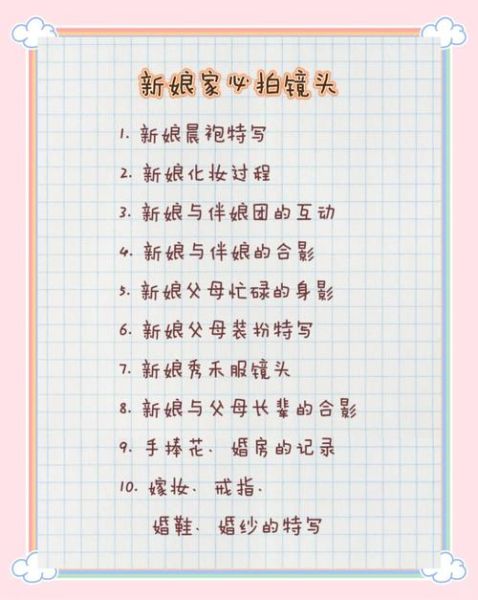 新娘家必拍镜头
1. 新娘晨袍特写
2. 新娘化妆过程
3. 新娘与伴娘团的互动
4. 新娘与伴娘的合影
5. 新娘父母忙碌的身影
6. 新娘父母装扮特写
7. 新娘秀禾服镜头
8. 新娘与父母长辈的合影
9. 手捧花、婚房的记录
10. 嫁妆、戒指、
婚鞋、婚纱的特写